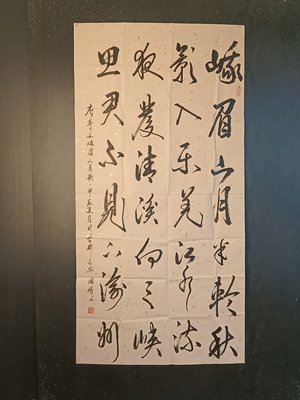 峨眉山月半輪秋
影入平羌江水流
夜發清溪向三峽
思君不見下渝州
唐李白峨眉山月歌 甲辰夏月